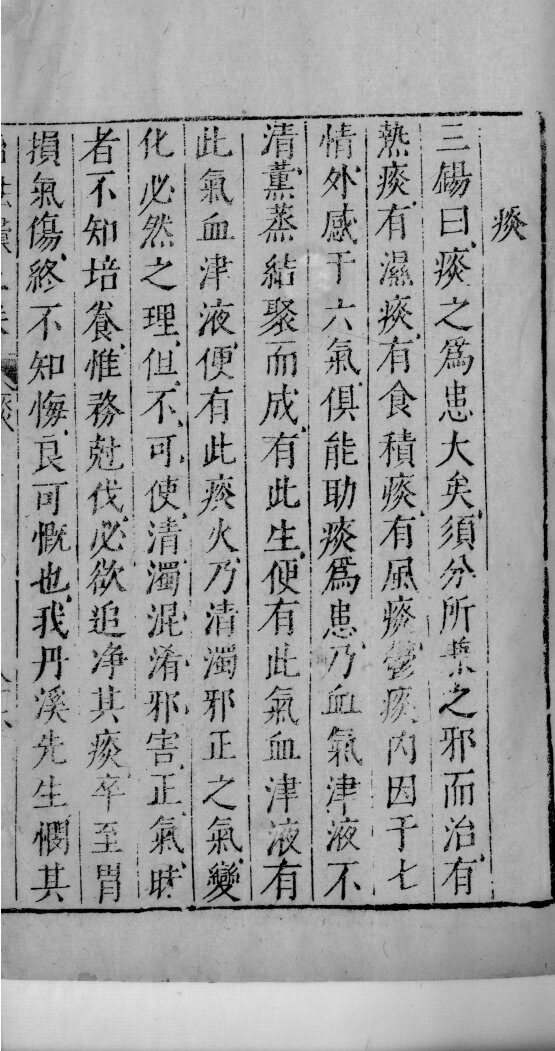 痰
三錫曰痰之爲患大矣須分所兼之邪而治有
熱痰有濕痰有食積痰有風痰鬱痰内因于七
情外感于六氣俱能助痰爲患乃血氣津液不
清薰蒸結聚而成有此生便有此氣血津液有
此氣血津液便有此痰火乃清濁邪正之氣變
化必然之理但不可使清濁混淆邪害正氣時
者不知培養惟務尅伐必欲追净其痰卒至胃
損氣傷終不知悔良可慨也我丹溪先生憫其